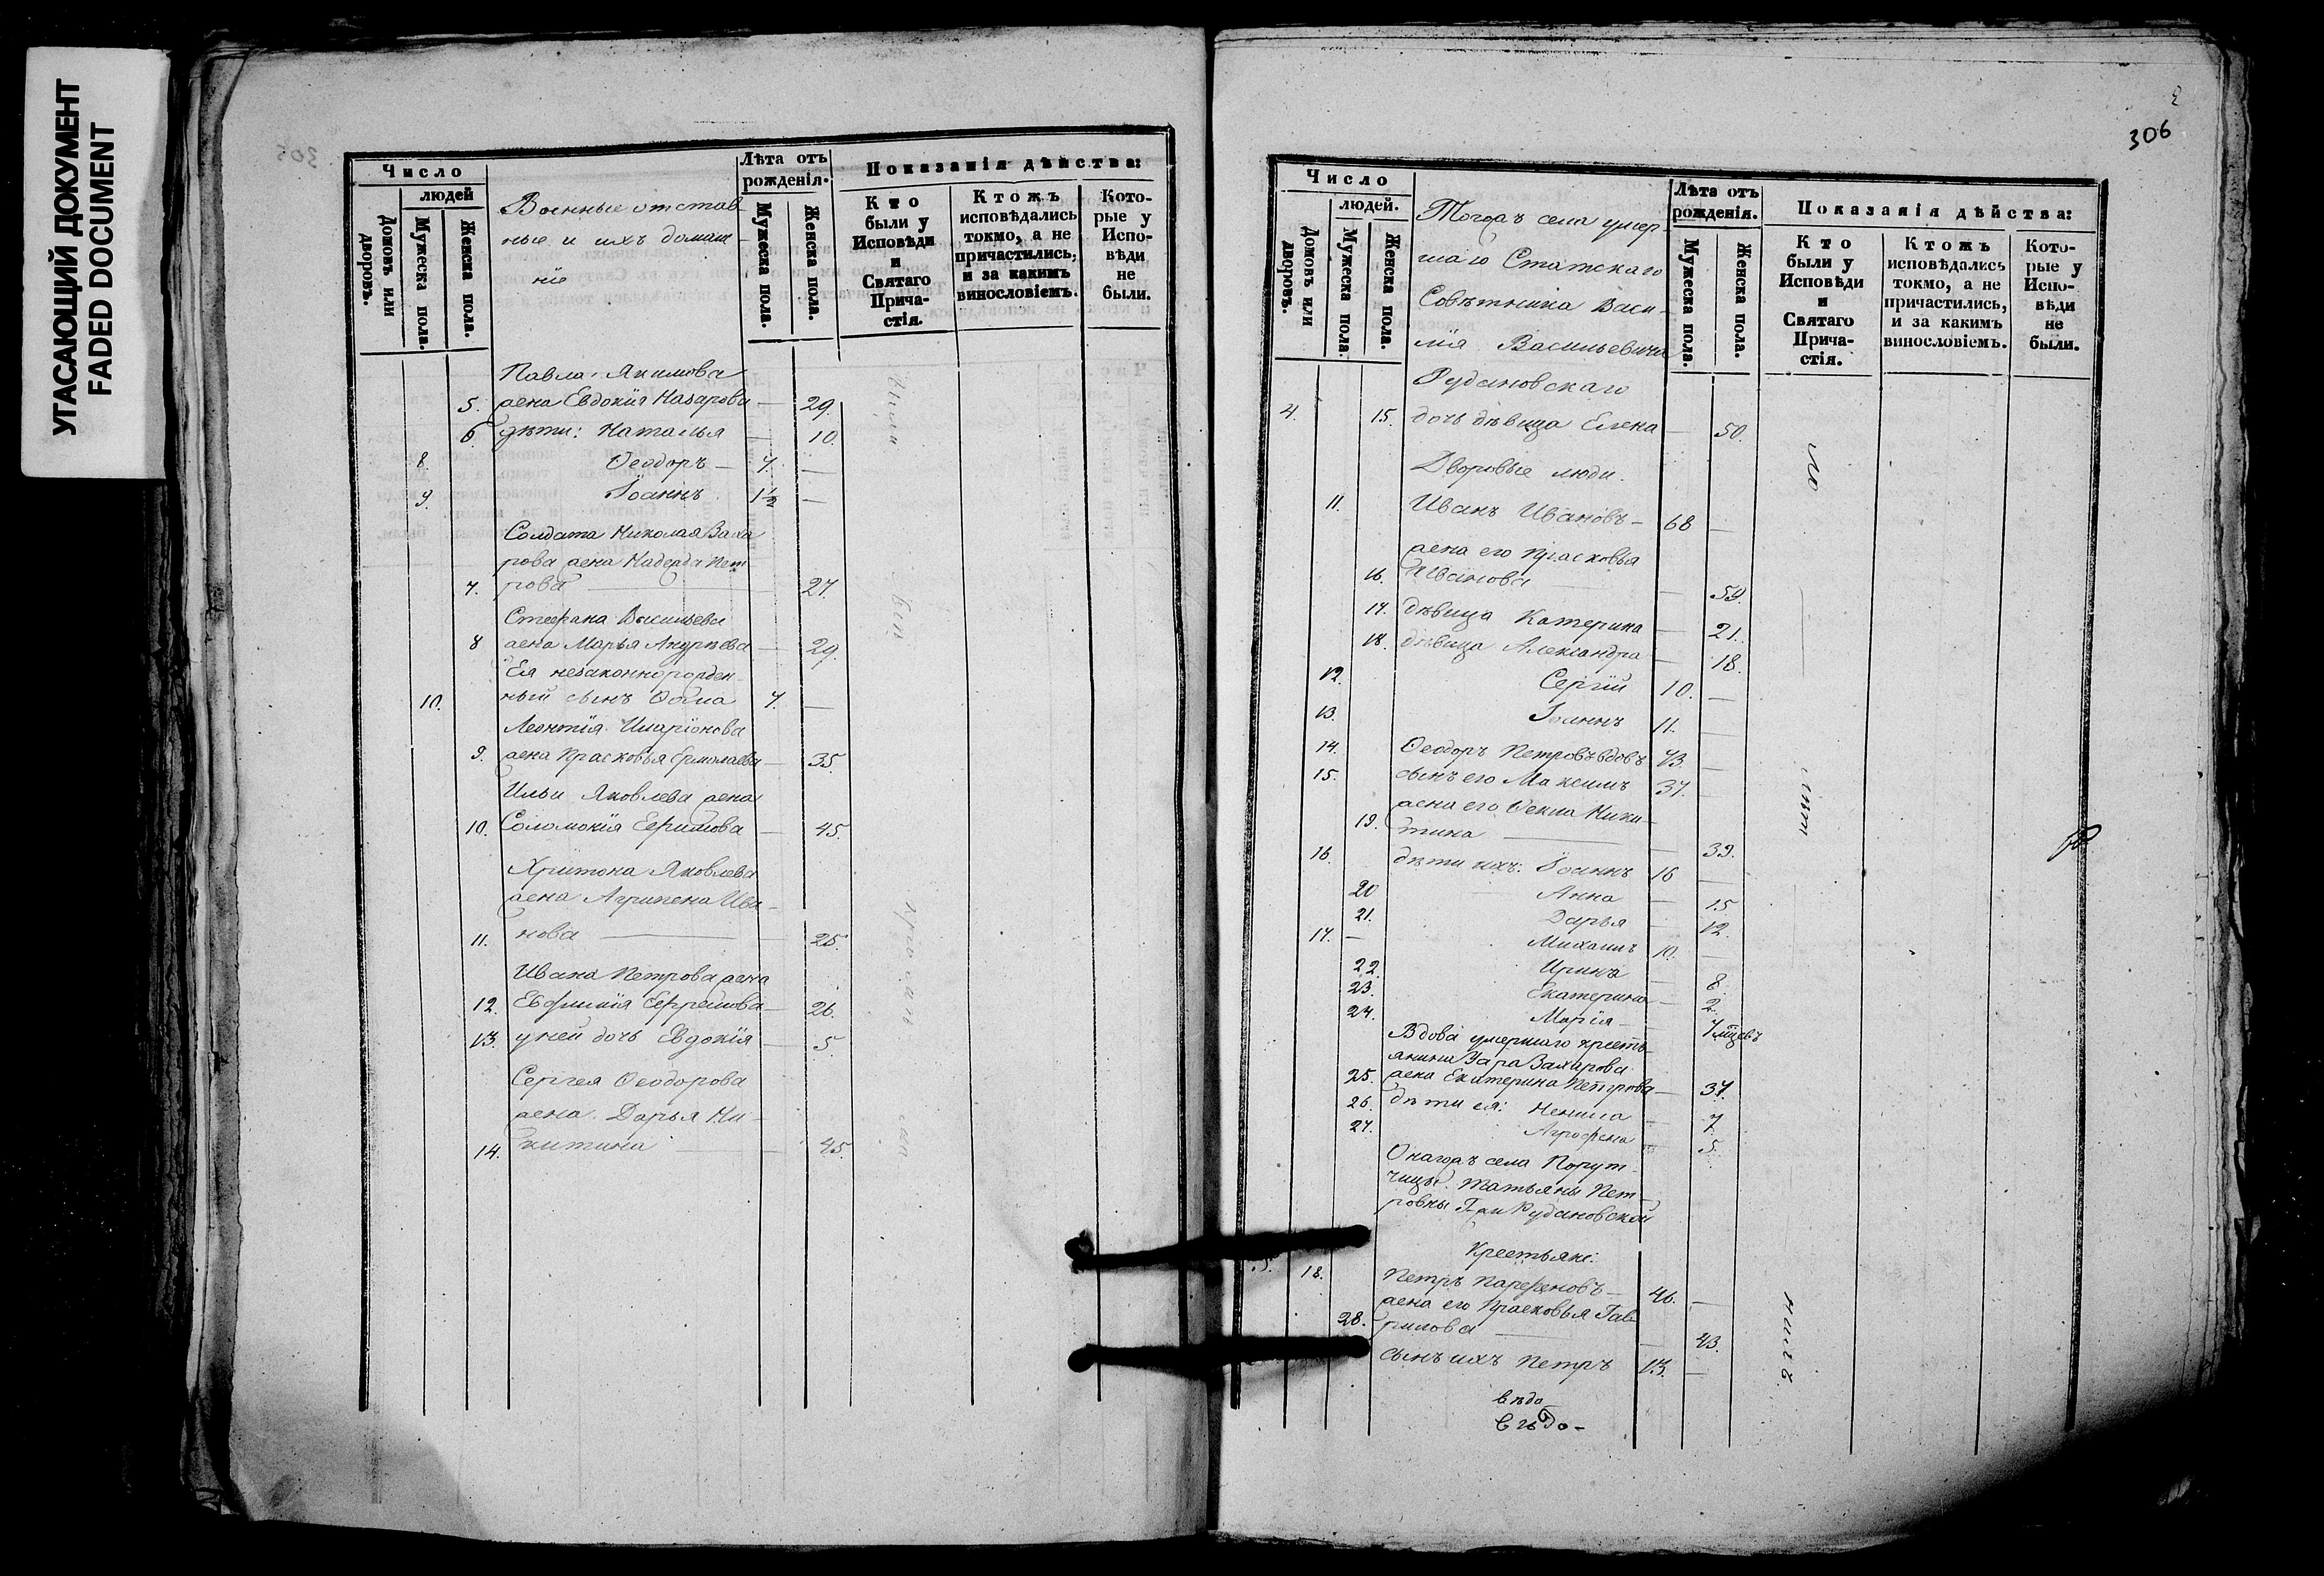 УГАСАЮЩИЙ ДОКУМЕНТ
FADED DOCUMENT
Число
людей
Домовъ или дворовъ.
Мужеска пола.
Женска пола.
Военные отстав-
ные и ихъ домаш-
нiе
Лѣта отъ
рожденiя.
Мужеска пола.
Женска пола.
Показанiя дѣйства:
Кто
были у
Исповѣди
и
Святаго
Прича-
стiя.
Ктожъ
исповѣдались
токмо, а не
причастились,
и за какимъ
винословiемъ.
Кото-
рые у
Испо-
вѣди
не
были.
Павла Якимова
5. жена Евдокiя Назарова — 29.
6. дѣти: Наталья — 10.
8. Ѳеодоръ — 7. —
9. Iоаннъ 1½ —
Солдата Николая Заха
рова жена Надежда Пет
7. рова — 27.
Стефана Васильева
8 жена Марья Андрѣева — 29.
Ея незаконнорожден-
10. ный сынъ Ѳома 7. —
Леонтiя Иларiонова
9. жена Прасковья Ермолаева — 35.
Ильи Яковлева жена
10. Соломонiя Ефимова — 45.
Харитона Яковлева
жена Агрипена Ива-
11. нова — 25.
Ивана Петрова жена
12. Евфимiя Ефремова — 26.
13. у ней дочь Евдокiя — 5.
Сергея Ѳеодорова
жена Дарья Ни-
14. китина — 45.
306
Число
людей.
Домовъ или дворовъ.
Мужеска пола.
Женска пола.
Тогожъ села умер-
шаго Статскаго
Совѣтника Васи-
лiя Васильевича
Рудановскаго
Лѣта отъ
рожденiя.
Мужеска пола.
Женска пола.
Показанiя дѣйства:
Кто
были у
Исповѣди
и
Святаго
Прича-
стiя.
Ктожъ
исповѣдались
токмо, а не
причастились,
и за какимъ
винословiемъ.
Кото-
рые у
Испо-
вѣди
не
были.
4. 15. дочь дѣвица Елена — 50.
Дворовые люди.
11. Иванъ Ивановъ — 68 —
жена его Прасковья
16. Иванова — 59.
17. дѣвица Катерина — 21.
18. дѣвица Александра — 18.
12. Сергiй 10. —
13. Iоаннъ 11. —
14. Ѳеодоръ Петровъ вдовъ 73. —
15. сынъ его Максимъ 37. —
жена его Ѳекла Ники-
19. тина — 39.
16. дѣти ихъ: Iоаннъ 16 —
20 Анна — 15
21. Дарья — 12.
17. — Михаилъ 10. —
22. Ирина — 8.
23. Екатерина — 2.
24. Марiя — 7 мцевъ
Вдова умершаго кресть-
янина Уара Захарова
25. жена Екатерина Петрова — 37.
26. дѣти ея: Ненила — 7
27. Агрофена — 5.
Онагожъ села Порут-
чицы Татьяны Пет-
ровны Г-жи Рудановской
Крестьяне:
5. 18. Петръ Парфеновъ — 46. —
жена его Прасковья Гав-
28. рилова — 43.
сынъ ихъ Петръ 13. —
вѣдо